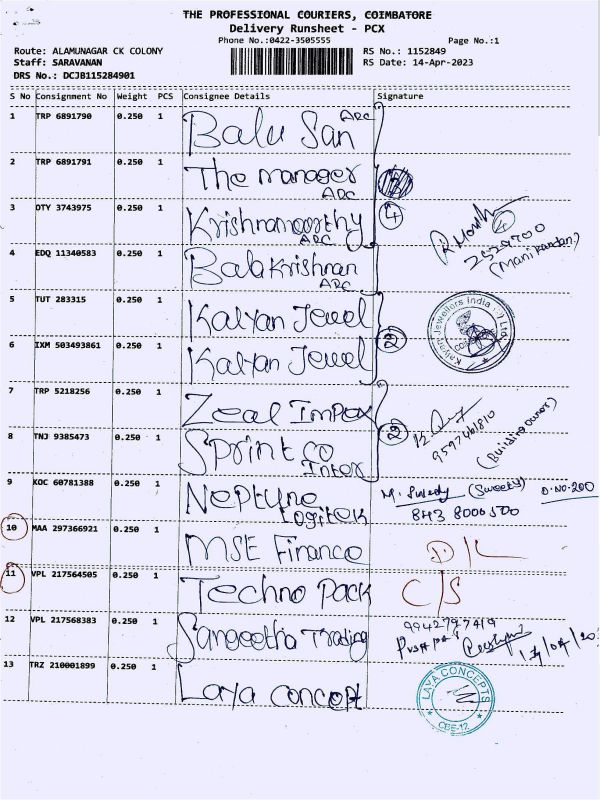 THE PROFESSIONAL COURIERS, COIMBATORE
Delivery Runsheet - PCX
Phone No.:0422-3505555 Page No.:1
Route: ALAMUNAGAR CK COLONY RS No.: 1152849
Staff: SARAVANAN RS Date: 14-Apr-2023
DRS No.: DCJB115284901
S No Consignment No Weight PCS Consignee Details Signature
1 TRP 6891790 0.250 1 Balu San ARC
2 TRP 6891791 0.250 1 The manager ARC
3 DTY 3743975 0.250 1 Krishnamoorthy ARC 4
4 EDQ 11340583 0.250 1 Balakrishnan ARC
4
2529700
(Manikandan)
5 TUT 283315 0.250 1 Kalyan Jewel
6 IXM 503493861 0.250 1 Kalyan Jewel 2
Kalyan Jewellers India Ltd
7 TRP 5218256 0.250 1 Zeal Impex
8 TNJ 9385473 0.250 1 Sprint co Inter 2
9597461810
(Building owner)
9 KOC 60781388 0.250 1 Neptune Logitek (Sweety) D.NO.200
843 8000500
10 MAA 297366921 0.250 1 MSE Finance D/L
11 VPL 217564505 0.250 1 Techno Pack C/S
12 VPL 217568383 0.250 1 Sangeetha Trading
9942797419
13 TRZ 210001899 0.250 1 Laya concept
LAYA CONCEPTS
CBE-12